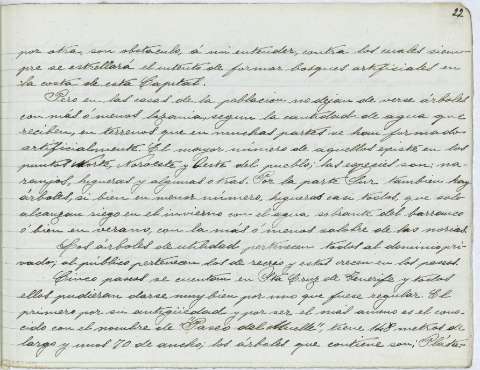 22
por otra, son obstáculo, á mi entender, contra los cuales siem-
pre se estrellará el intento de formar bosques artificiales en
la costa de esta Capital.
Pero en las casas de la poblacion no dejan de verse árboles
con más ó menos lozanía, segun la cantidad de agua que
reciben, en terrenos que en muchas partes se han formado
artificialmente. El mayor número de aquellos existe en los
puntos Norte, Noroeste y Oeste del pueblo; las especies son: na-
ranjos, higueras y algunas otras. Por la parte Sur tambien hay
árboles, si bien en menor número, higueras casi todos, que solo
alcanzan riego en el invierno con el agua sobrante del barranco
ó bien en verano, con la más ó menos salobre de las norias.
Los árboles de utilidad pertenecen todos al dominio pri-
vado; al público pertenecen los de recreo y estos crecen en los paseos.
Cinco paseos se cuentan en Sta Cruz de Tenerife y todos
ellos pudieran darse muy bien por uno que fuese regular. El
primero por su antigüedad y por ser el más ameno es el cono-
cido con el nombre de "Paseo del Muelle", tiene 148 metros de
largo y unos 70 de ancho; los árboles que contiene son; Pláta-